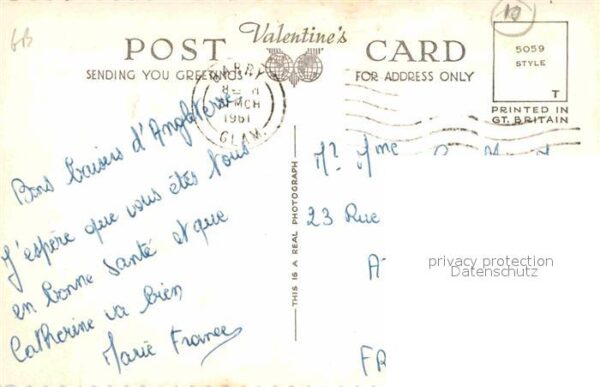 GB
10
Valentine's
POST CARD
SENDING YOU GREETINGS
FOR ADDRESS ONLY
5059
STYLE
T
PRINTED IN
GT. BRITAIN
BARRY
MCH
1961
GLAM
Bons baisers d'Angleterre
J'espère que vous êtes tous
en bonne santé et que
Catherine va bien
Marie France
THIS IS A REAL PHOTOGRAPH
Mr Mme
23 Rue
A
FR
privacy protection
Datenschutz